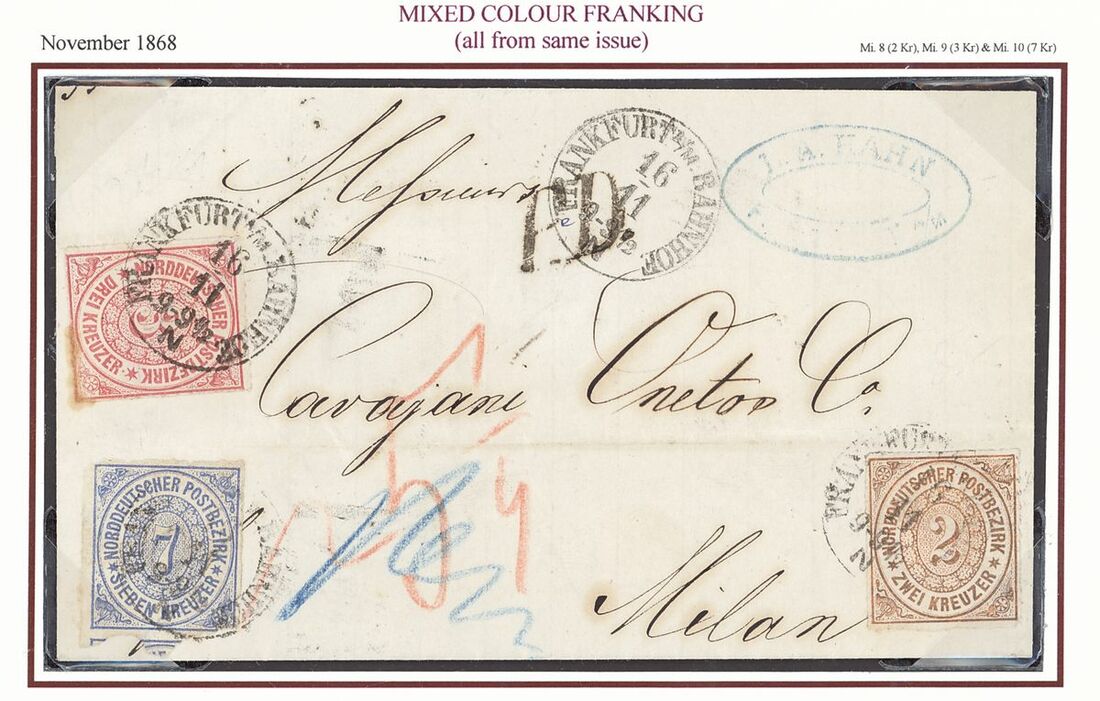 MIXED COLOUR FRANKING
(all from same issue)
November 1868
Mi. 8 (2 Kr), Mi. 9 (3 Kr) & Mi. 10 (7 Kr)
Messieurs
FRANKFURT A/M BAHNHOF
16
11
PD
L. A. HAHN
FRANKFURT A/M BAHNHOF
16
11
9-9½
N
NORDDEUTSCHER POSTBEZIRK
DREI KREUZER
3
Cavajani Onetos Co.
NORDDEUTSCHER POSTBEZIRK
7
SIEBEN KREUZER
NORDDEUTSCHER POSTBEZIRK
2
ZWEI KREUZER
Milan